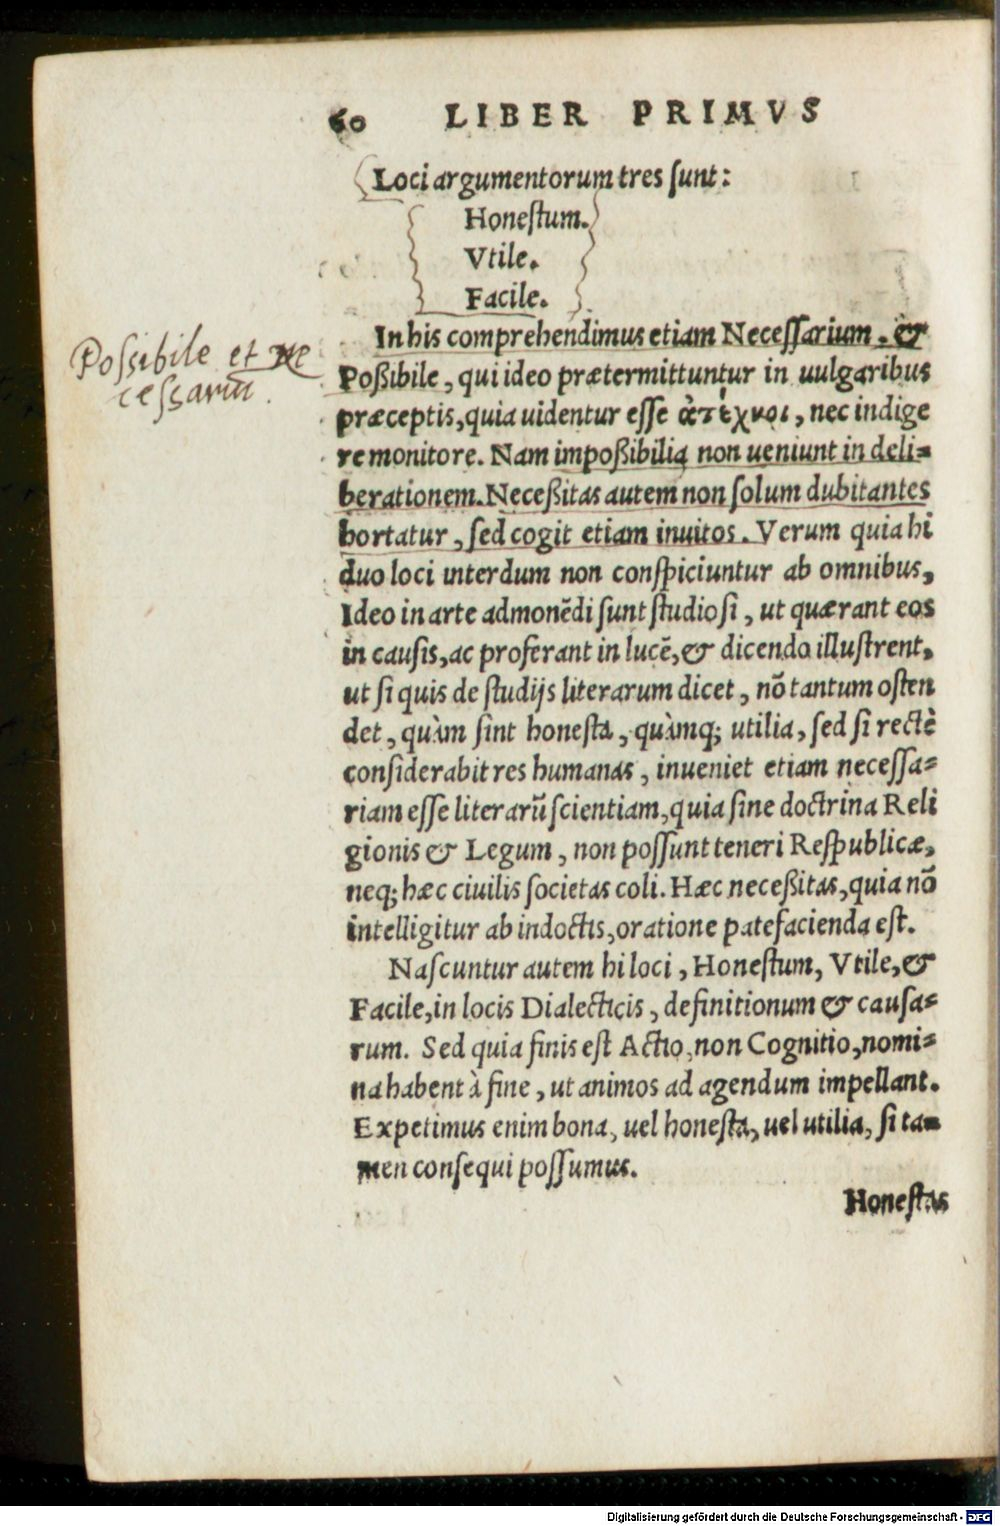 60 LIBER PRIMVS
Loci argumentorum tres ſunt:
Honeſtum.
Vtile.
Facile.
In his comprehendimus etiam Neceſſarium. &
Poßibile, qui ideo prætermittuntur in uulgaribus
præceptis, quia uidentur eſſe ἀτέχνοι, nec indige
re monitore. Nam impoßibilia non ueniunt in deli=
berationem. Neceßitas autem non ſolum dubitantes
hortatur, ſed cogit etiam inuitos. Verum quia hi
duo loci interdum non conſpiciuntur ab omnibus,
Ideo in arte admonēdi ſunt ſtudioſi, ut quærant eos
in cauſis, ac proferant in lucē, & dicendo illuſtrent,
ut ſi quis de ſtudijs literarum dicet, nō tantum oſten
det, quàm ſint honeſta, quàmq; utilia, ſed ſi rectè
conſiderabit res humanas, inueniet etiam neceſſa=
riam eſſe literarū ſcientiam, quia ſine doctrina Reli
gionis & Legum, non poſſunt teneri Reſpublicæ,
neq; hæc ciuilis ſocietas coli. Hæc neceßitas, quia nō
intelligitur ab indoctis, oratione patefacienda eſt.
Naſcuntur autem hi loci, Honeſtum, Vtile, &
Facile, in locis Dialecticis, definitionum & cauſa=
rum. Sed quia finis eſt Actio, non Cognitio, nomi=
na habent à fine, ut animos ad agendum impellant.
Expetimus enim bona, uel honeſta, uel utilia, ſi ta=
men conſequi poſſumus.
Honeſtas
Poſsibile et Ne
ceſſariū.
Digitalisierung gefördert durch die Deutsche Forschungsgemeinschaft - DFG